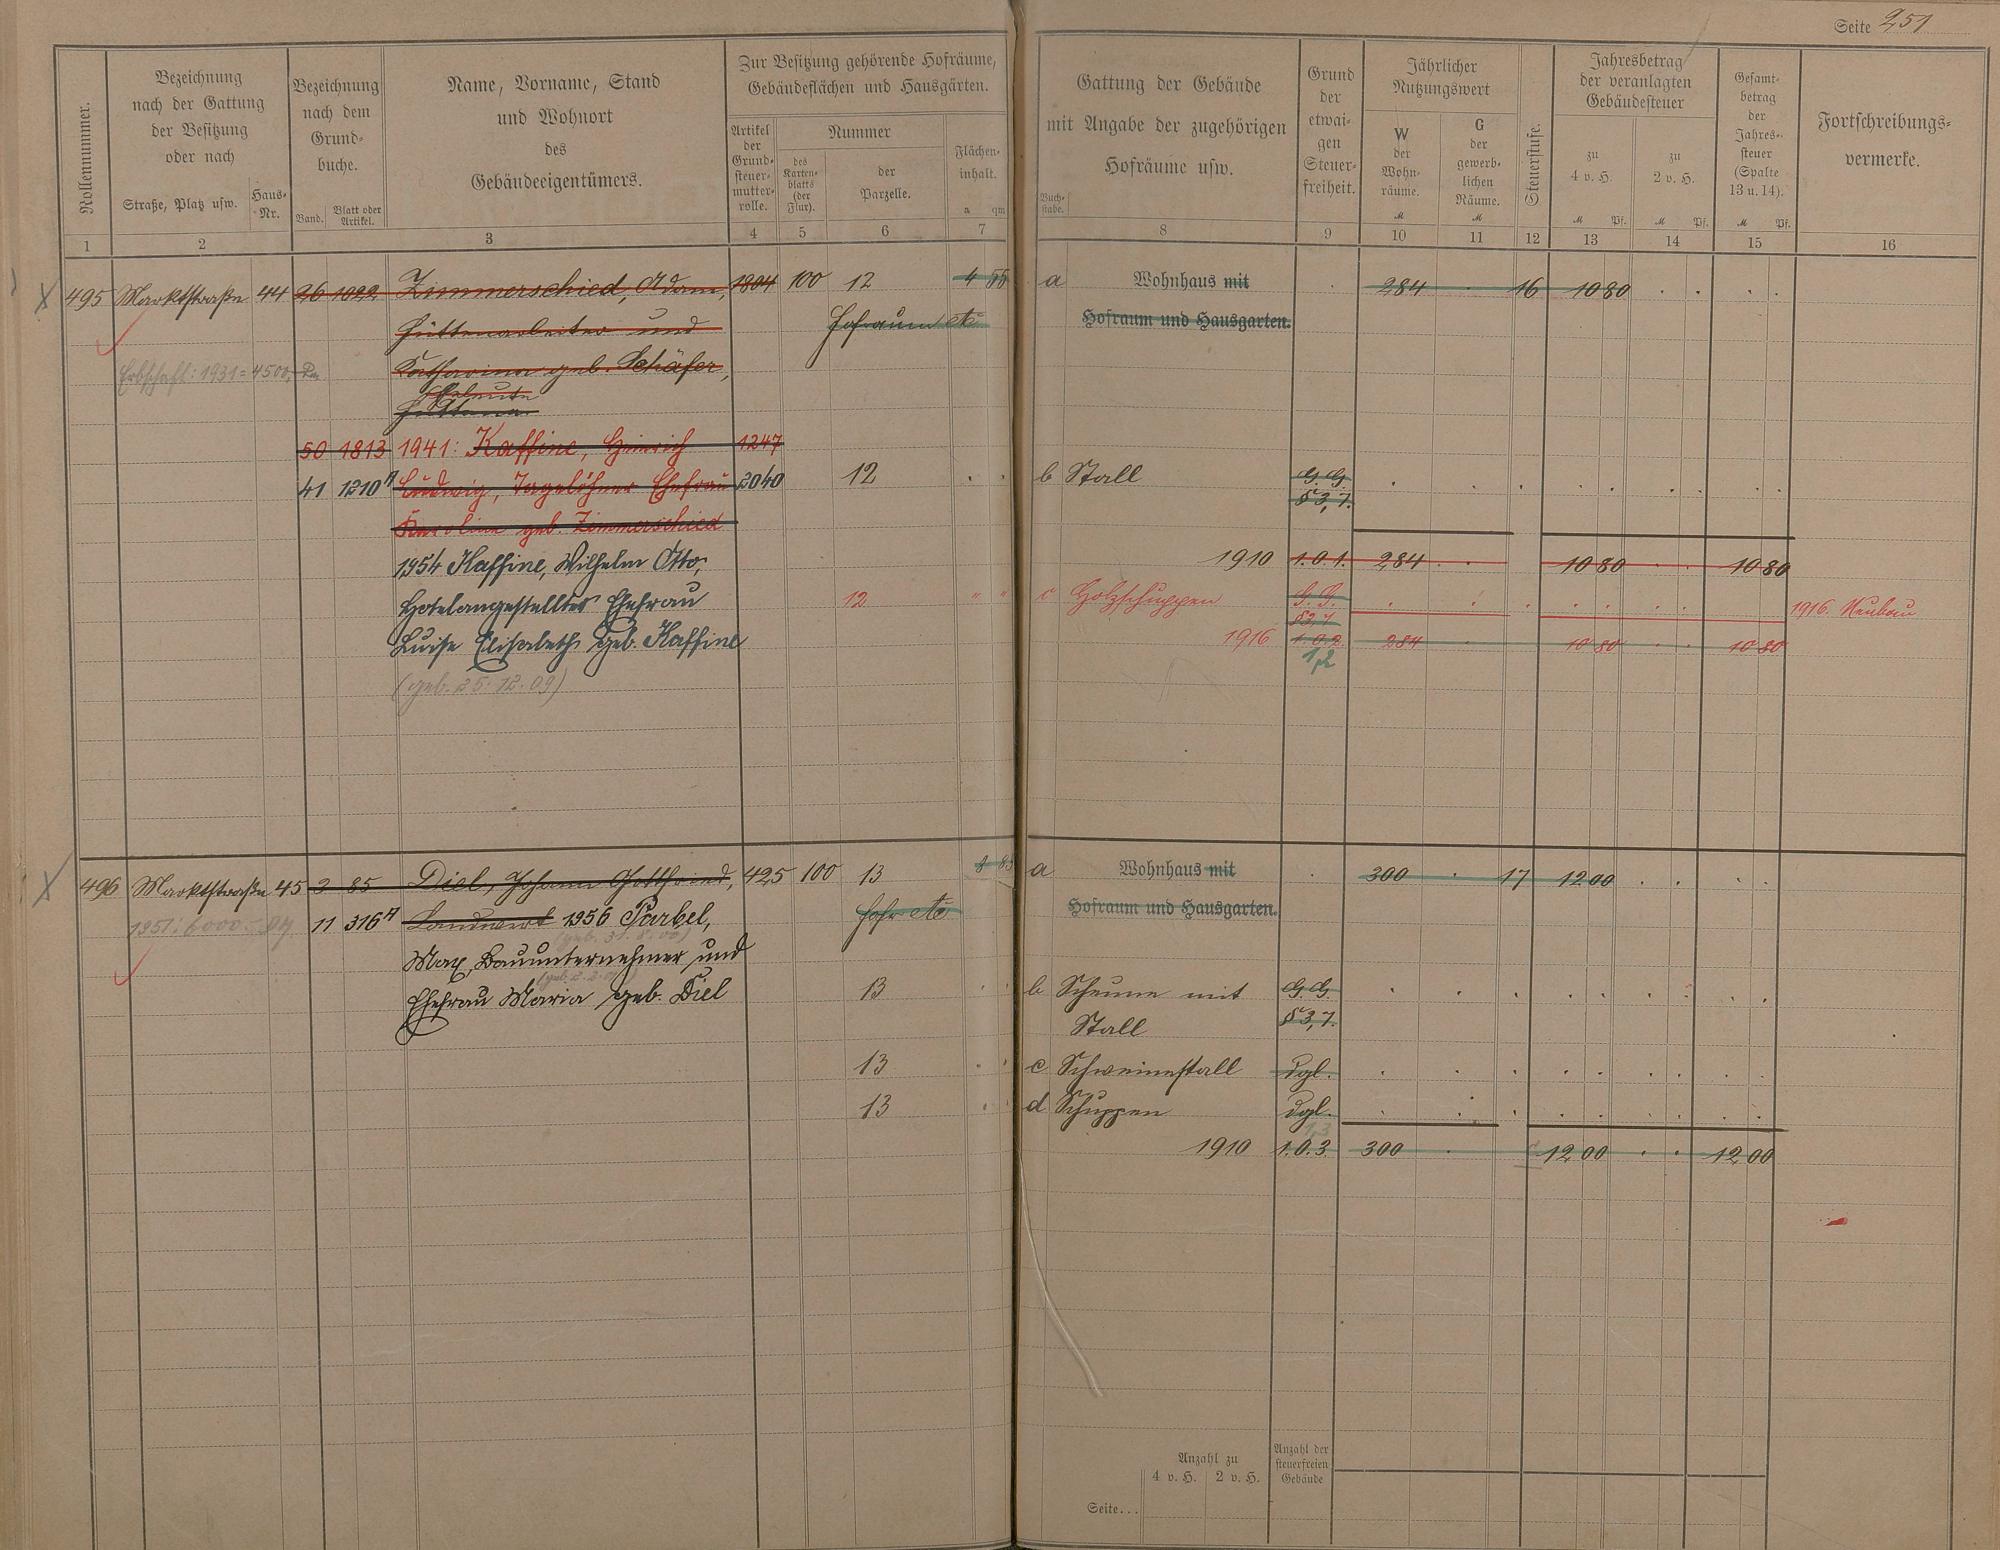 Seite 251
Rollennummer.
Bezeichnung
nach der Gattung
der Besitzung
oder nach
Straße, Platz usw.
Haus-
Nr.
Bezeichnung
nach dem
Grund-
buche.
Band.
Blatt oder
Artikel.
Name, Vorname, Stand
und Wohnort
des
Gebäudeeigentümers.
Zur Besitzung gehörende Hofräume,
Gebäudeflächen und Hausgärten.
Artikel
der
Grund-
steuer-
mutter-
rolle.
Nummer
des
Karten-
blatts
(der
Flur).
der
Parzelle.
Flächen-
inhalt.
a qm
Gattung der Gebäude
mit Angabe der zugehörigen
Hofräume usw.
Buch-
stabe.
Grund
der
etwai-
gen
Steuer-
freiheit.
Jährlicher
Nutzungswert
W
der
Wohn-
räume.
M
G
der
gewerb-
lichen
Räume.
M
Steuerstufe.
Jahresbetrag
der veranlagten
Gebäudesteuer
zu
4 v. H.
M Pf.
zu
2 v. H.
M Pf.
Gesamt-
betrag
der
Jahres-
steuer
(Spalte
13 u. 14).
M Pf.
Fortschreibungs-
vermerke.
1 2 3 4 5 6 7 8 9 10 11 12 13 14 15 16
495 Marktstraße 44 26 1022 Zimmerschied, Adam, 1804 100 12 4 55 a Wohnhaus mit 284 16 10 80
Hüttenarbeiter und Hofraum etc Hofraum und Hausgarten.
Erbschaft: 1931 = 4500,- Katharina geb. Schäfer,
Eheleute
50 1813 1941: Kaffine, Heinrich 1247
41 1210 A Ludwig, Tagelöhner Ehefrau 2040 12 b Stall G. G.
§ 3, 7.
Karoline geb. Zimmerschied
1954 Kaffine, Wilhelm Otto, 1910 1.0.1. 284 10 80 10 80
Hotelangestellter Ehefrau 12 " " c Holzschuppen G. G. 1916. Neubau
§ 3, 7
Luise Elisabeth geb. Kaffine 1916 1.0.2. 284 10 80 10 80
1,2
(geb. 25.12.09)
496 Marktstraße 45 3 85 Diel, Johann Gottfried, 425 100 13 a Wohnhaus mit 300 17 12 00
1951: 6000.- 11 316 A Landwirt 1956 Parbel, Hofr etc Hofraum und Hausgarten.
Max, Bauunternehmer und
Ehefrau Maria geb. Diel 13 b Scheune mit G. G.
Stall § 3, 7.
13 c Schweinestall dgl.
13 d Schuppen dgl.
1,3
1910 1.0.3 300 12 00 12 00
Anzahl zu
4 v. H. 2 v. H.
Anzahl der
steuerfreien
Gebäude
Seite...